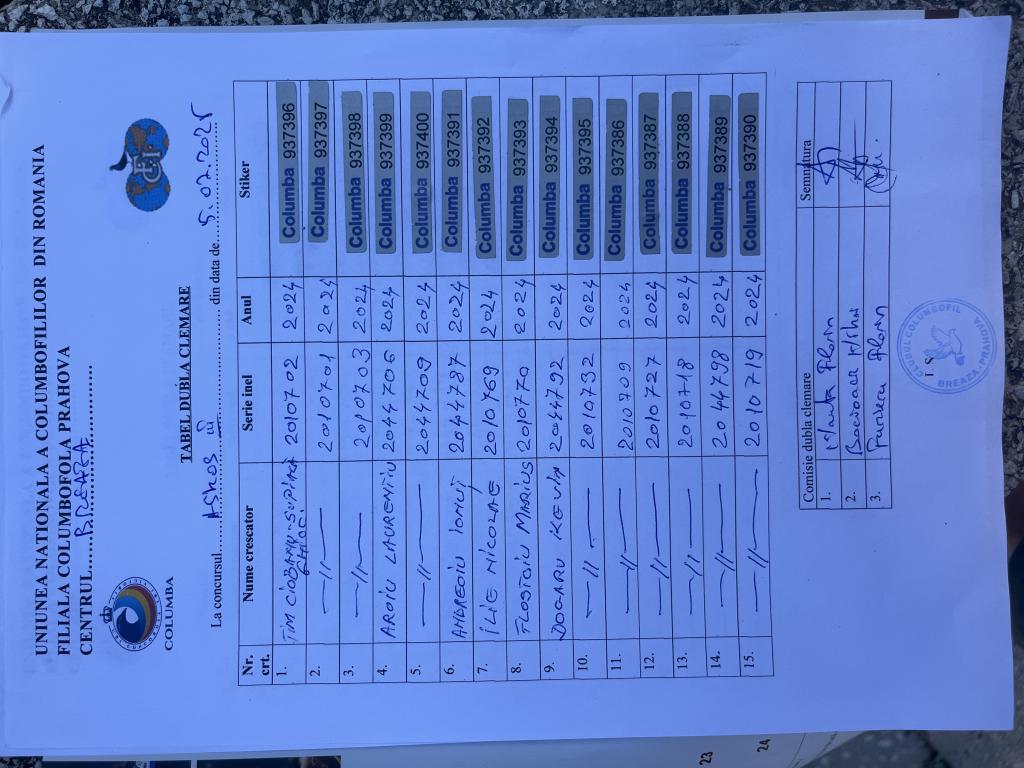 UNIUNEA NATIONALA A COLUMBOFILILOR DIN ROMANIA
FILIALA COLUMBOFOLA PRAHOVA
CENTRUL......BREAZA......
COLUMBA
TABEL DUBLA CLEMARE
La concursul......ASKOS III......din data de......5.07.2025......
Nr. crt. Nume crescator Serie inel Anul Stiker
1. TIM CIOBANU-SUPIMA 2010702 2024 Columba 937396
2. —//— 2010701 2024 Columba 937397
3. —//— 2010703 2024 Columba 937398
4. AROIU LAURENTIU 2044706 2024 Columba 937399
5. —//— 2044709 2024 Columba 937400
6. ANDREOIU IONUȚ 2044787 2024 Columba 937391
7. ILIE NICOLAE 2010769 2024 Columba 937392
8. FLOSTOIU MARIUS 2010770 2024 Columba 937393
9. DOGARU KEVIN 2044792 2024 Columba 937394
10. —//— 2010732 2024 Columba 937395
11. —//— 2010709 2024 Columba 937386
12. —//— 2010727 2024 Columba 937387
13. —//— 2010718 2024 Columba 937388
14. —//— 2044798 2024 Columba 937389
15. —//— 2010719 2024 Columba 937390
Comisie dubla clemare Semnatura
1. Manta Florin
2. Mihai
3. Florin
L.S.
CLUBUL COLUMBOFIL
BREAZA - PRAHOVA
23
24